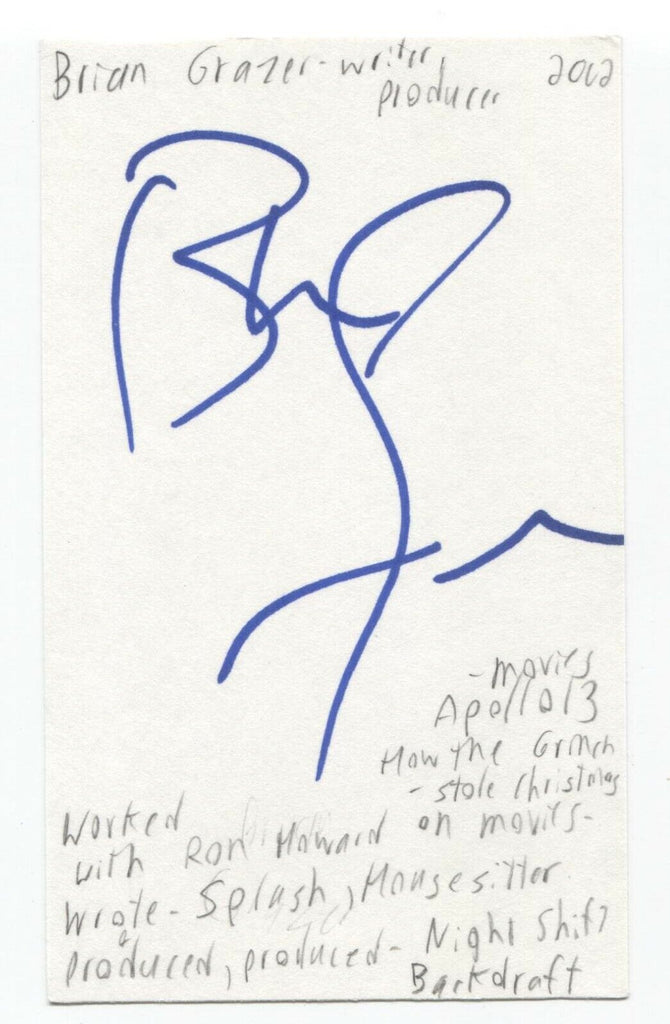 Brian Grazer - writer, 2002
producer
- movies
Apollo 13
How the Grinch
- stole Christmas
Worked
with Ron Howard on movies-
wrote - Splash, Housesitter
& produced, produced - Night Shift
Backdraft